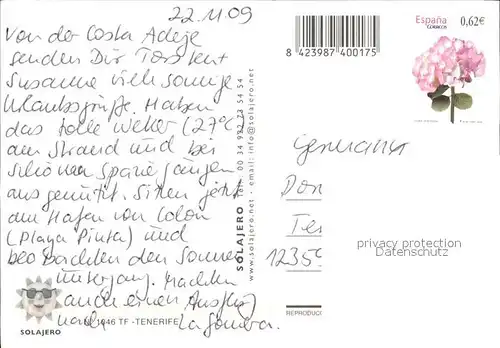 22.11.09
Von der Costa Adeje
senden Dir Torsten +
Susanne viele sonnige
Urlaubsgrüße. Haben
das tolle Wetter (27°C)
am Strand und bei
schönen Spaziergängen
ausgenutzt. Sitzen jetzt
am Hafen von Colon
(Playa Pinta) und
beobachten den Sonnen-
untergang. Machten
auch einen Ausflug
nach La Gomera.
SOLAJERO
1046 TF - TENERIFE
SOLAJERO Tel. 00 34 922 73 54 54
www.solajero.net - email: info@solajero.net
8 423987 400175
España
CORREOS
0,62€
Germany
Don
Tes
12359
privacy protection
Datenschutz
REPRODUC